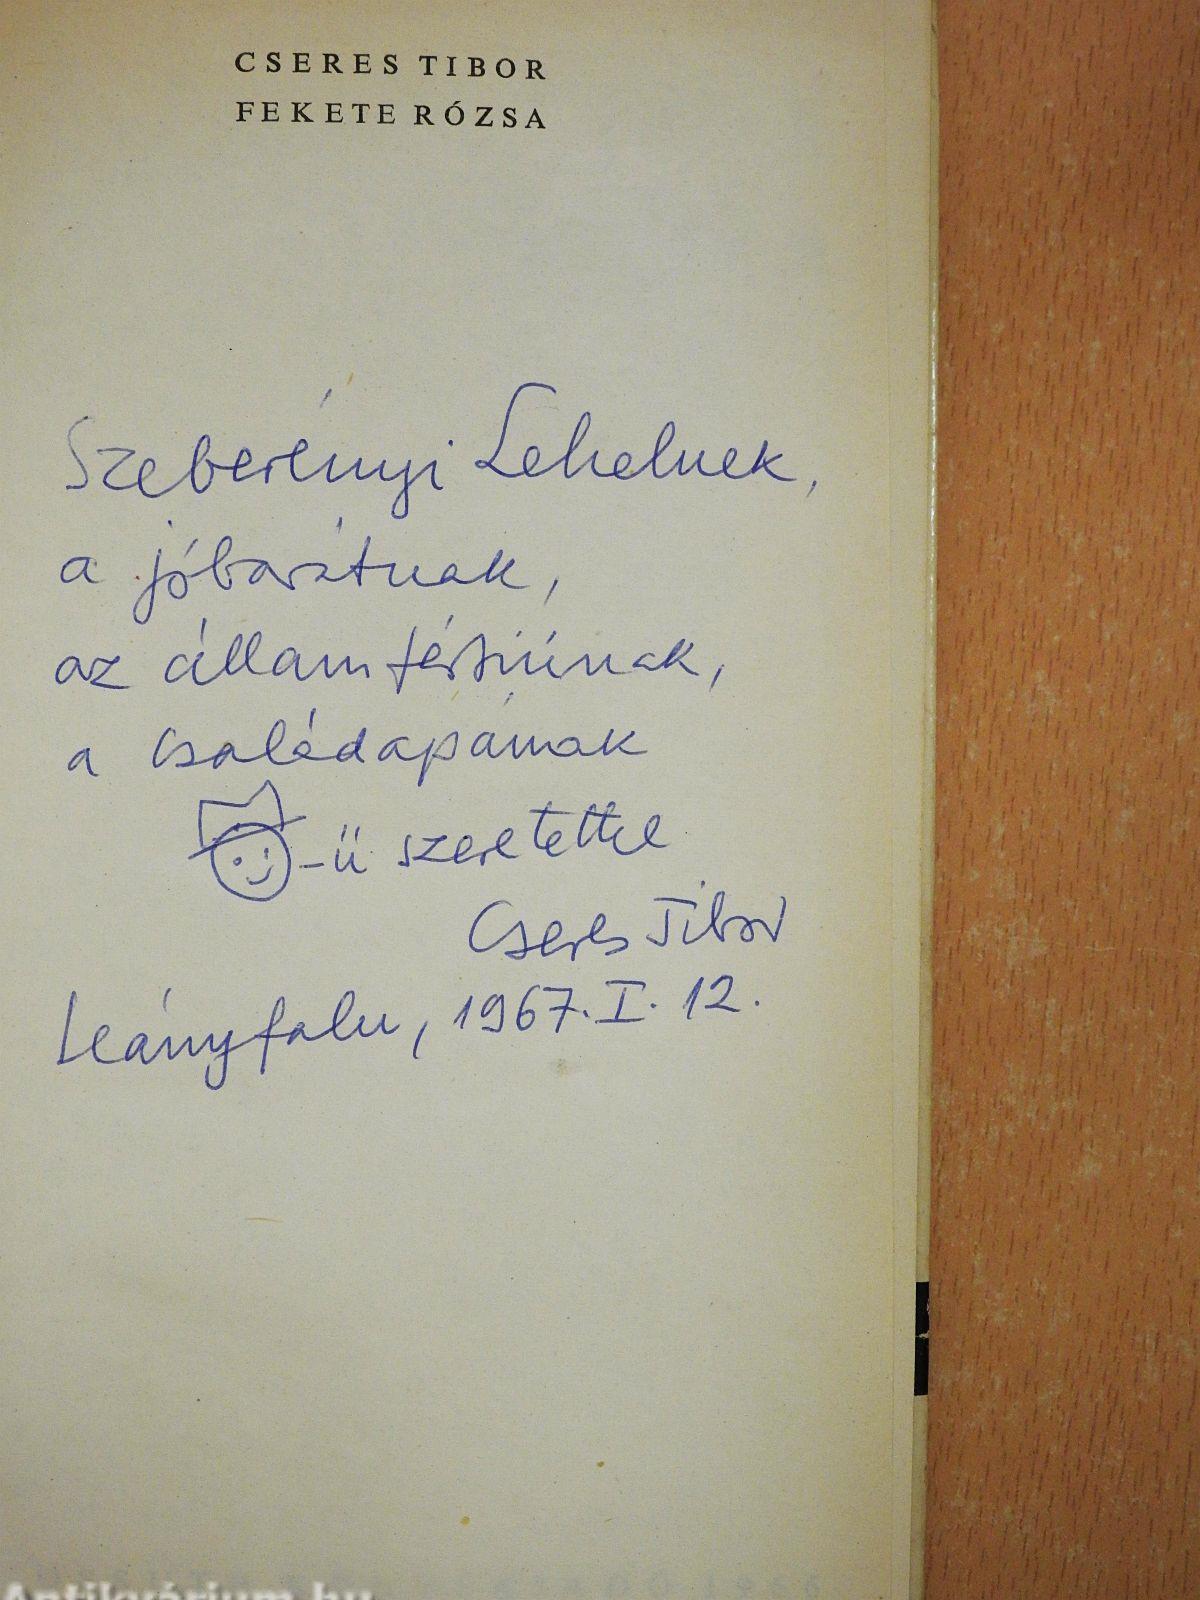 CSERES TIBOR
FEKETE RÓZSA
Szeberényi Lehelnek,
a jóbarátnak,
az államférfiúnak,
a családapának
-ű szeretettel
Cseres Tibor
Leányfalu, 1967. I. 12.
Antikvárium.hu